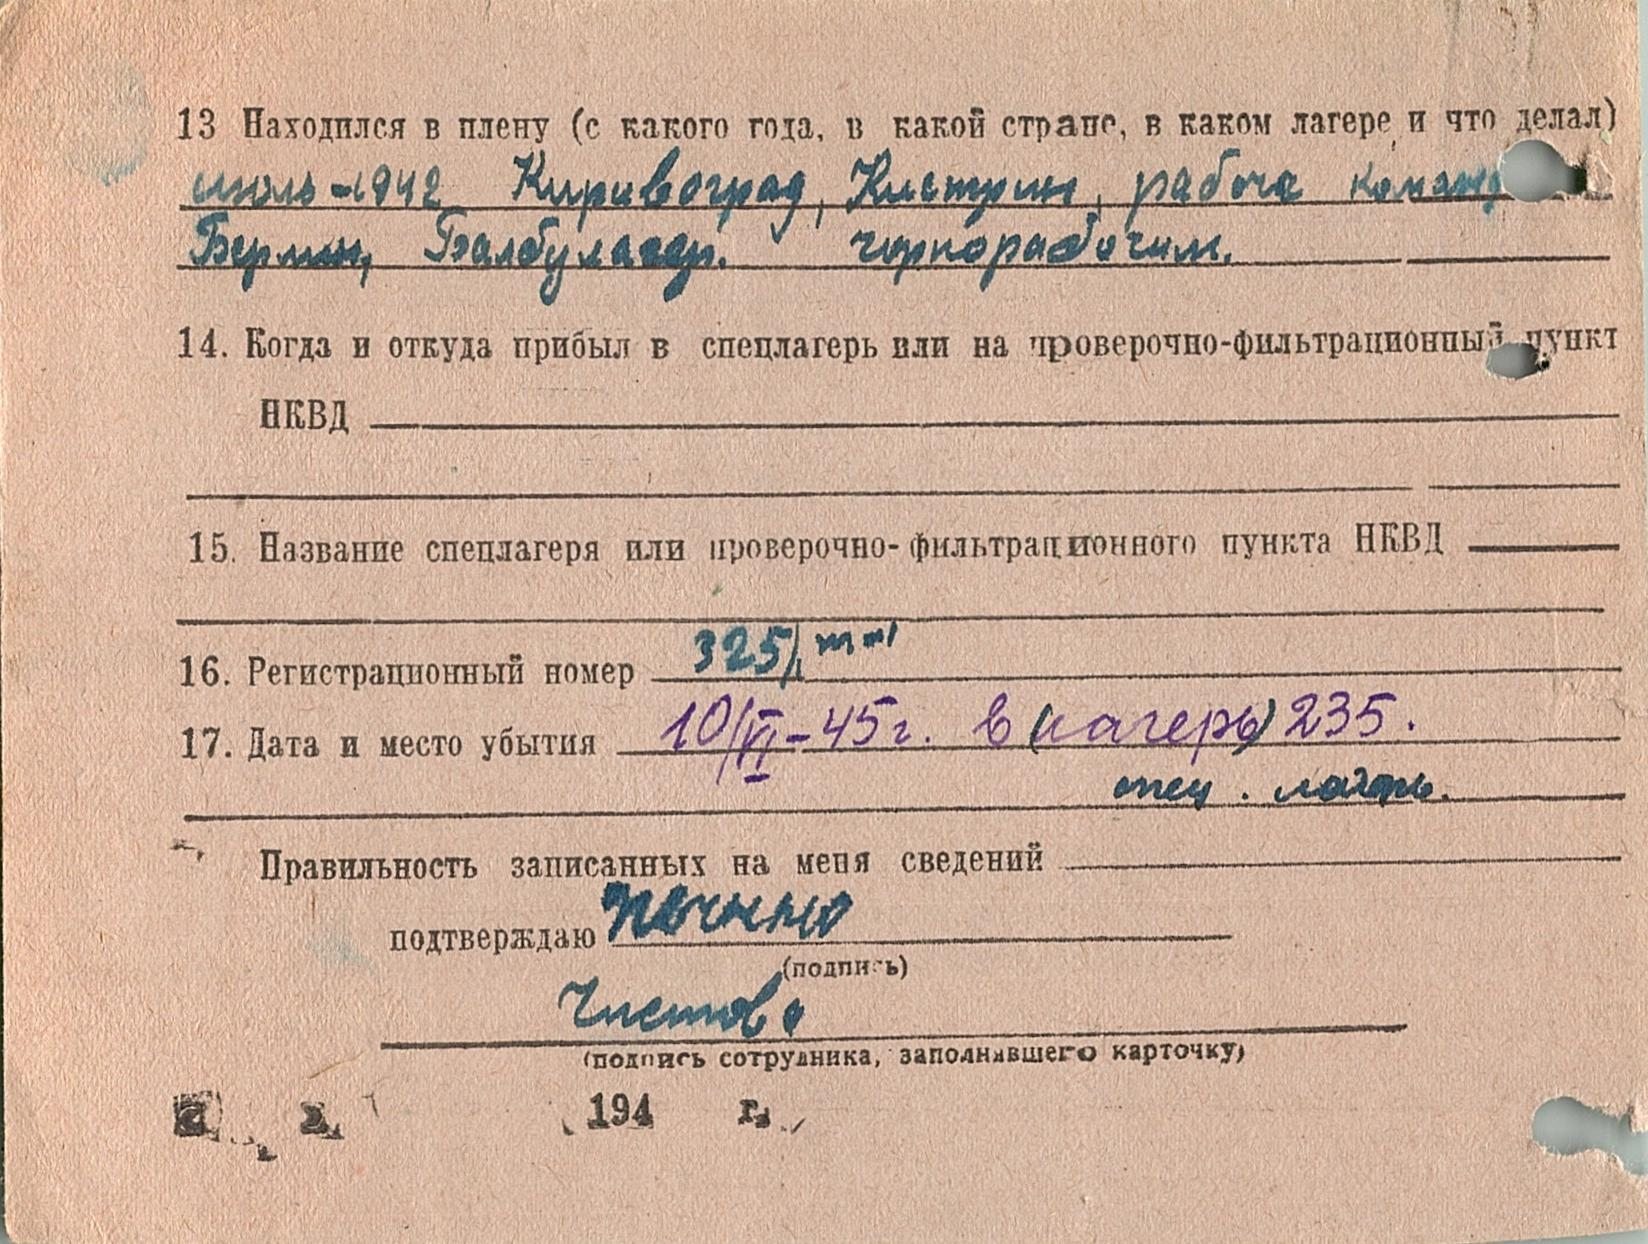 13 Находился в плену (с какого года, в какой стране, в каком лагере и что делал)
июль-1942 Кировоград, Кистрин, рабоча команд
Берлин, Балбулагер. чорнорабочим.
14. Когда и откуда прибыл в спецлагерь или на проверочно-фильтрационный пункт
НКВД
15. Название спецлагеря или проверочно-фильтрационного пункта НКВД
16. Регистрационный номер 325/
17. Дата и место убытия 10/VI-45г. в (лагерь) 235.
спец. лагерь.
Правильность записанных на меня сведений
подтверждаю
(подпись)
Чистова
(подпись сотрудника, заполнявшего карточку)
194 г.